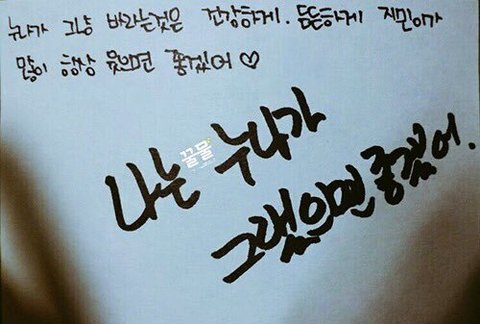 누나가 그냥 바라는것은 건강하게. 뜸뜸하게 지민이가
많이 항상 웃으면 좋겠어 ♡
나는 누나가
꿀물
그랬으면 좋겠어.